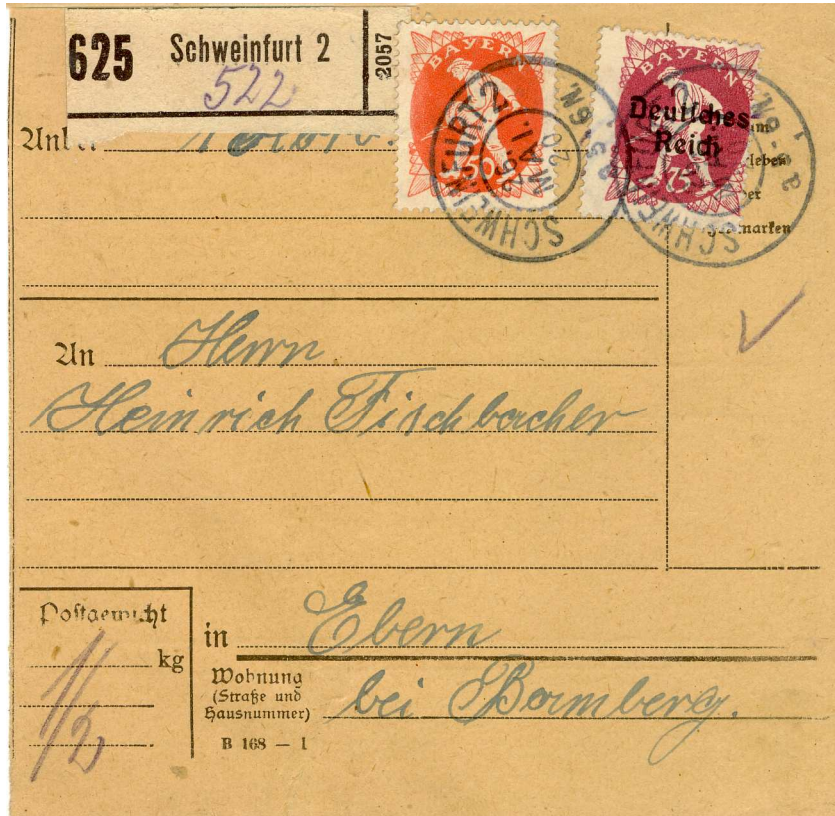 625 Schweinfurt 2 2057
522
BAYERN
50
BAYERN
Deutsches
Reich
75
SCHWEINFURT 2
26. MAI. 20
SCHWEINFURT 2
leben
marken
An Herrn
Heinrich Fischbacher
Postgewicht
kg
1/2
in Ebern
Wohnung
(Straße und
Hausnummer)
bei Bamberg.
B 168 — 1